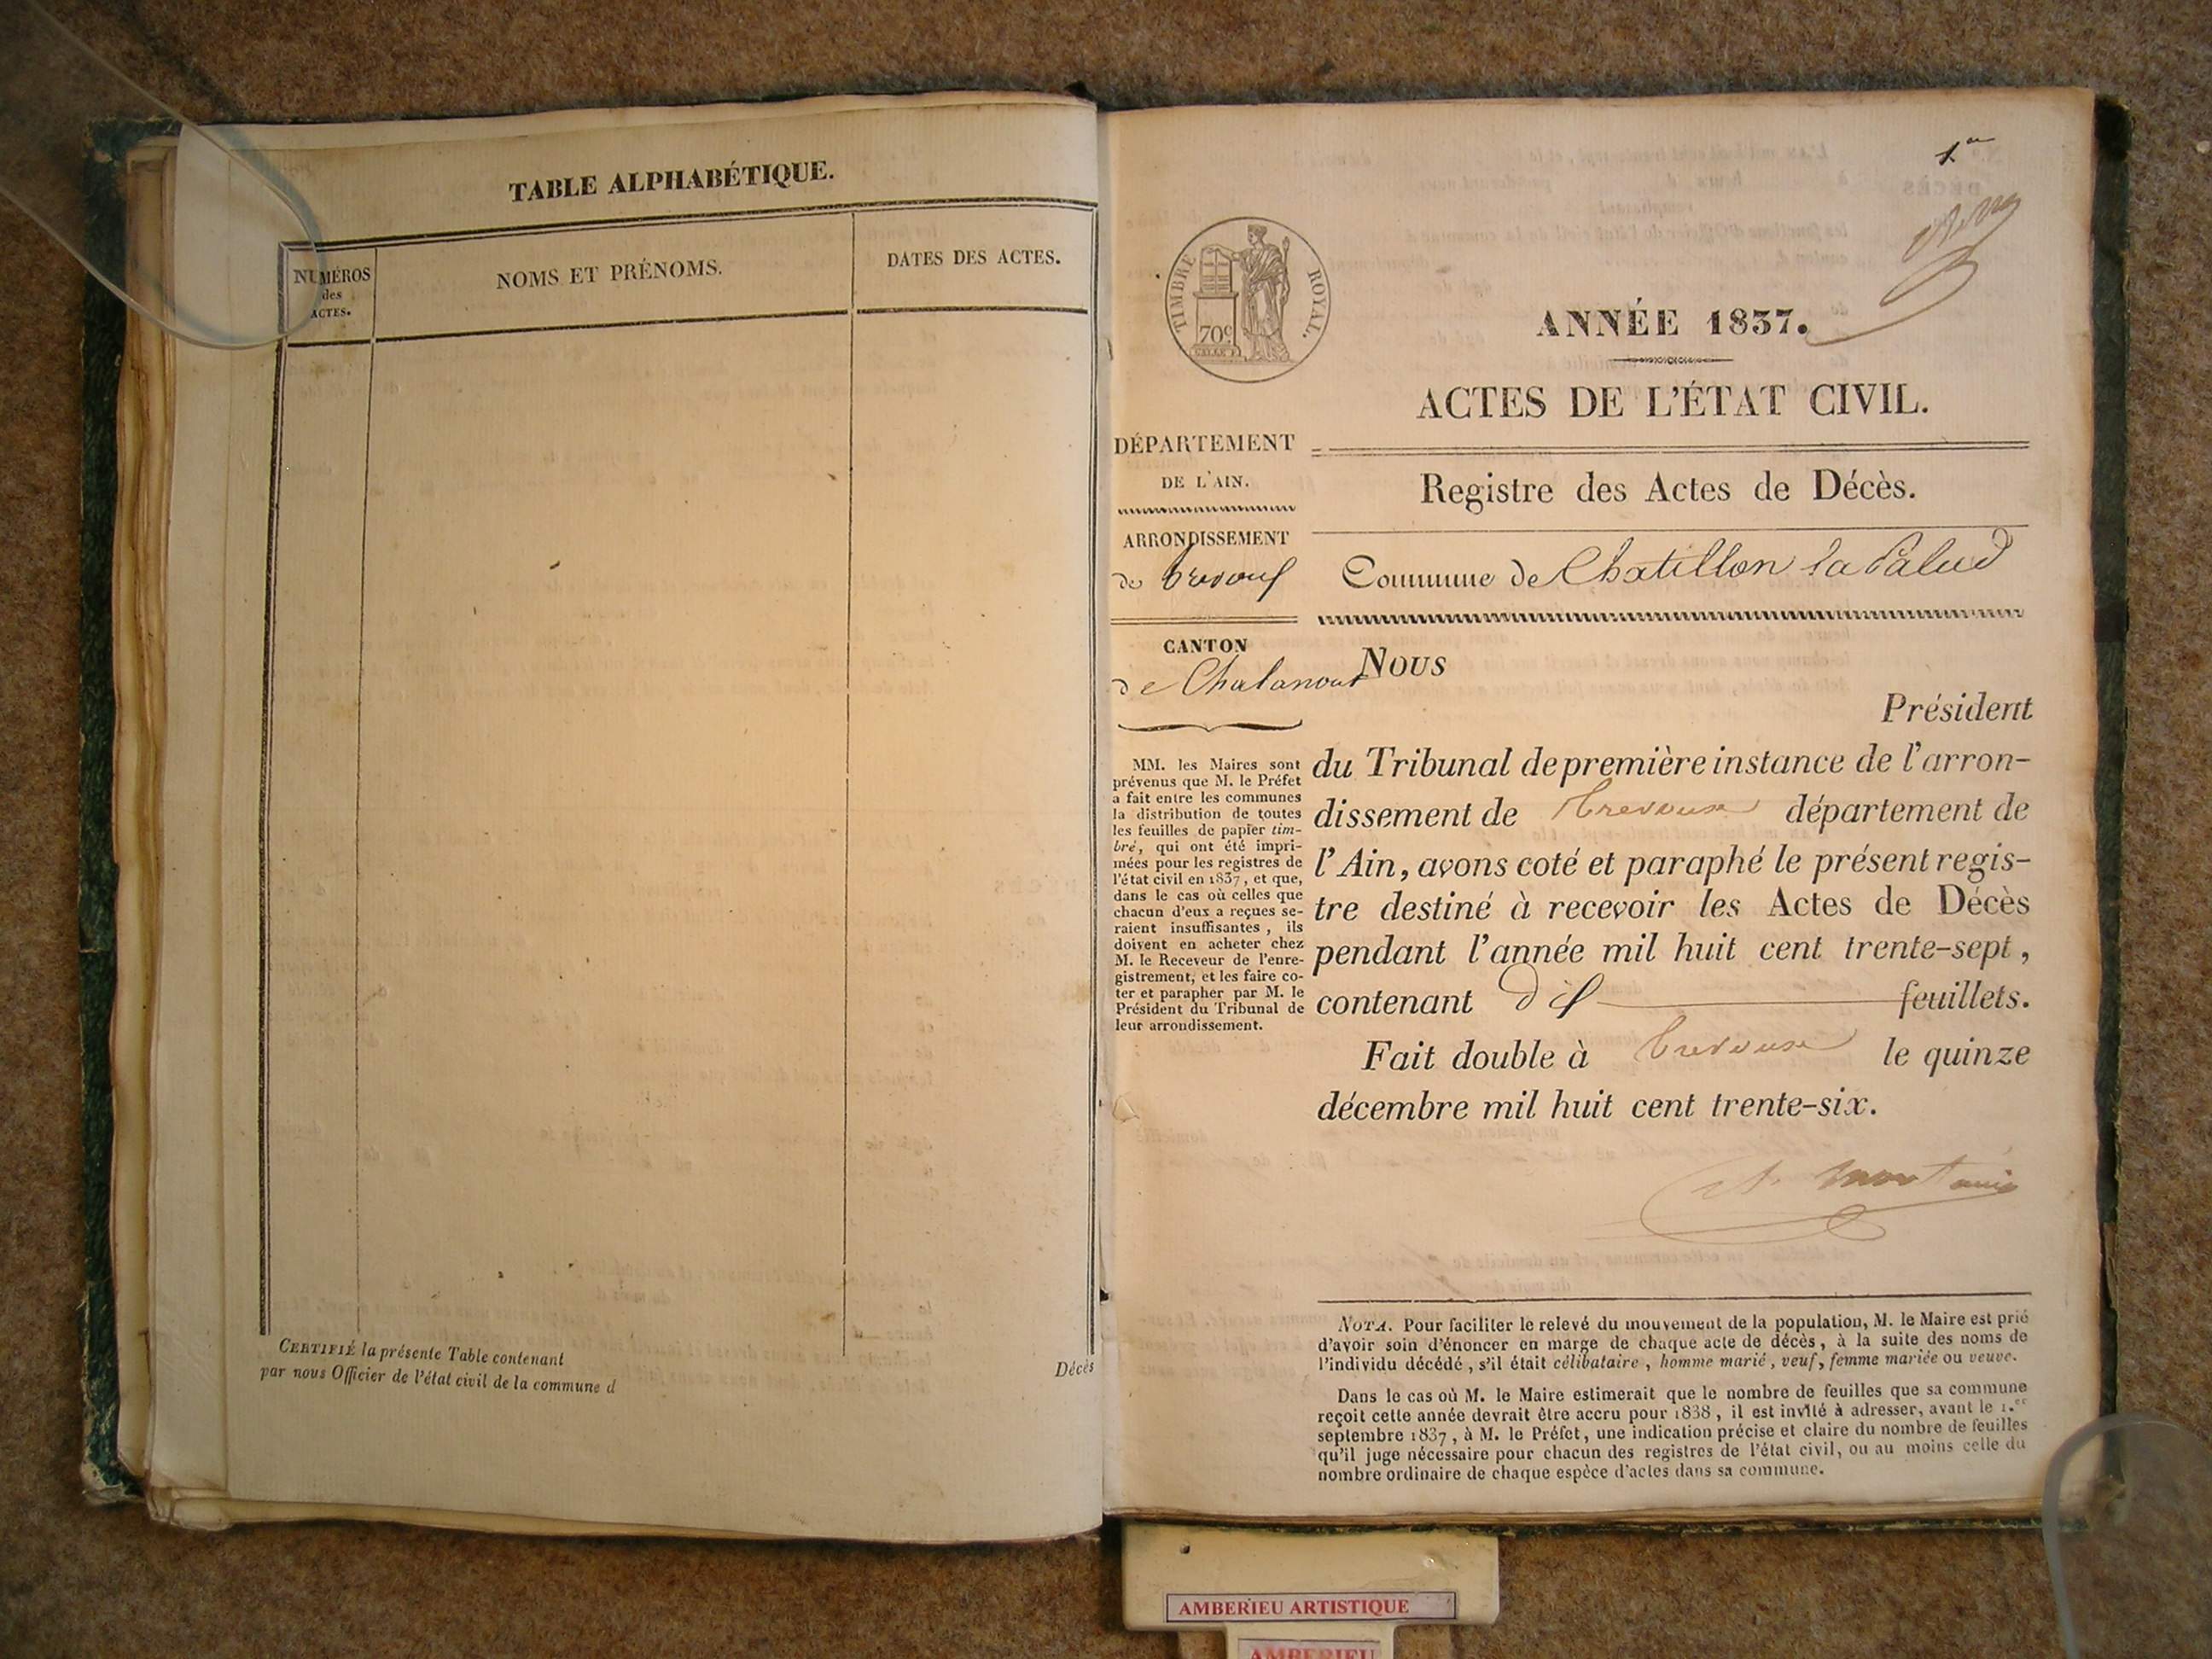 TABLE ALPHABÉTIQUE.
NUMÉROS
des
ACTES.
NOMS ET PRÉNOMS.
DATES DES ACTES.
CERTIFIÉ la présente Table contenant
par nous Officier de l'état civil de la commune d
Décès
1.er
TIMBRE ROYAL.
70c
ANNÉE 1837.
ACTES DE L'ÉTAT CIVIL.
DÉPARTEMENT
DE L'AIN.
Registre des Actes de Décès.
ARRONDISSEMENT
de Trevoux
Commune de Chatillon la Palud
CANTON
de Chalamont
MM. les Maires sont
prévenus que M. le Préfet
a fait entre les communes
la distribution de toutes
les feuilles de papier tim-
bré, qui ont été impri-
mées pour les registres de
l'état civil en 1837, et que,
dans le cas où celles que
chacun d'eux a reçues se-
raient insuffisantes, ils
doivent en acheter chez
M. le Receveur de l'enre-
gistrement, et les faire co-
ter et parapher par M. le
Président du Tribunal de
leur arrondissement.
Nous
Président
du Tribunal de première instance de l'arron-
dissement de Trevoux département de
l'Ain, avons coté et paraphé le présent regis-
tre destiné à recevoir les Actes de Décès
pendant l'année mil huit cent trente-sept,
contenant dix feuillets.
Fait double à Trevoux le quinze
décembre mil huit cent trente-six.
NOTA. Pour faciliter le relevé du mouvement de la population, M. le Maire est prié
d'avoir soin d'énoncer en marge de chaque acte de décès, à la suite des noms de
l'individu décédé, s'il était célibataire, homme marié, veuf, femme mariée ou veuve.
Dans le cas où M. le Maire estimerait que le nombre de feuilles que sa commune
reçoit cette année devrait être accru pour 1838, il est invité à adresser, avant le 1.er
septembre 1837, à M. le Préfet, une indication précise et claire du nombre de feuilles
qu'il juge nécessaire pour chacun des registres de l'état civil, ou au moins celle du
nombre ordinaire de chaque espèce d'actes dans sa commune.
AMBERIEU ARTISTIQUE
AMBERIEU